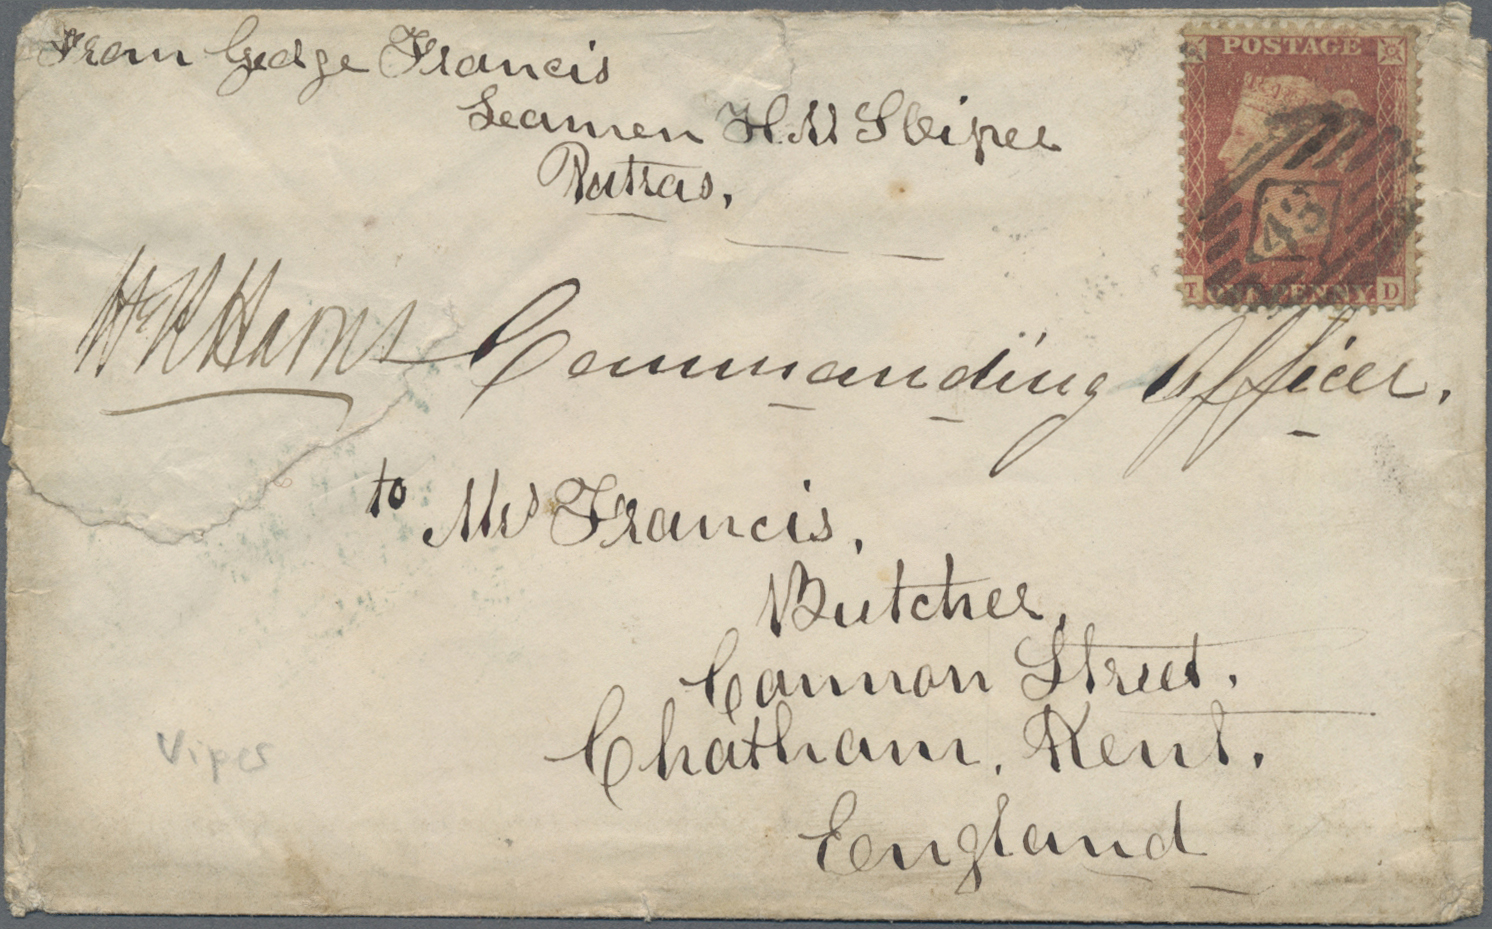 From George Francis
Seamen H.M S Viper
Patras,
POSTAGE
43
T ONE PENNY D
Harris Commanding Officer.
to Mrs Francis,
Butcher,
Cannon Street.
Chatham, Kent.
England
Viper